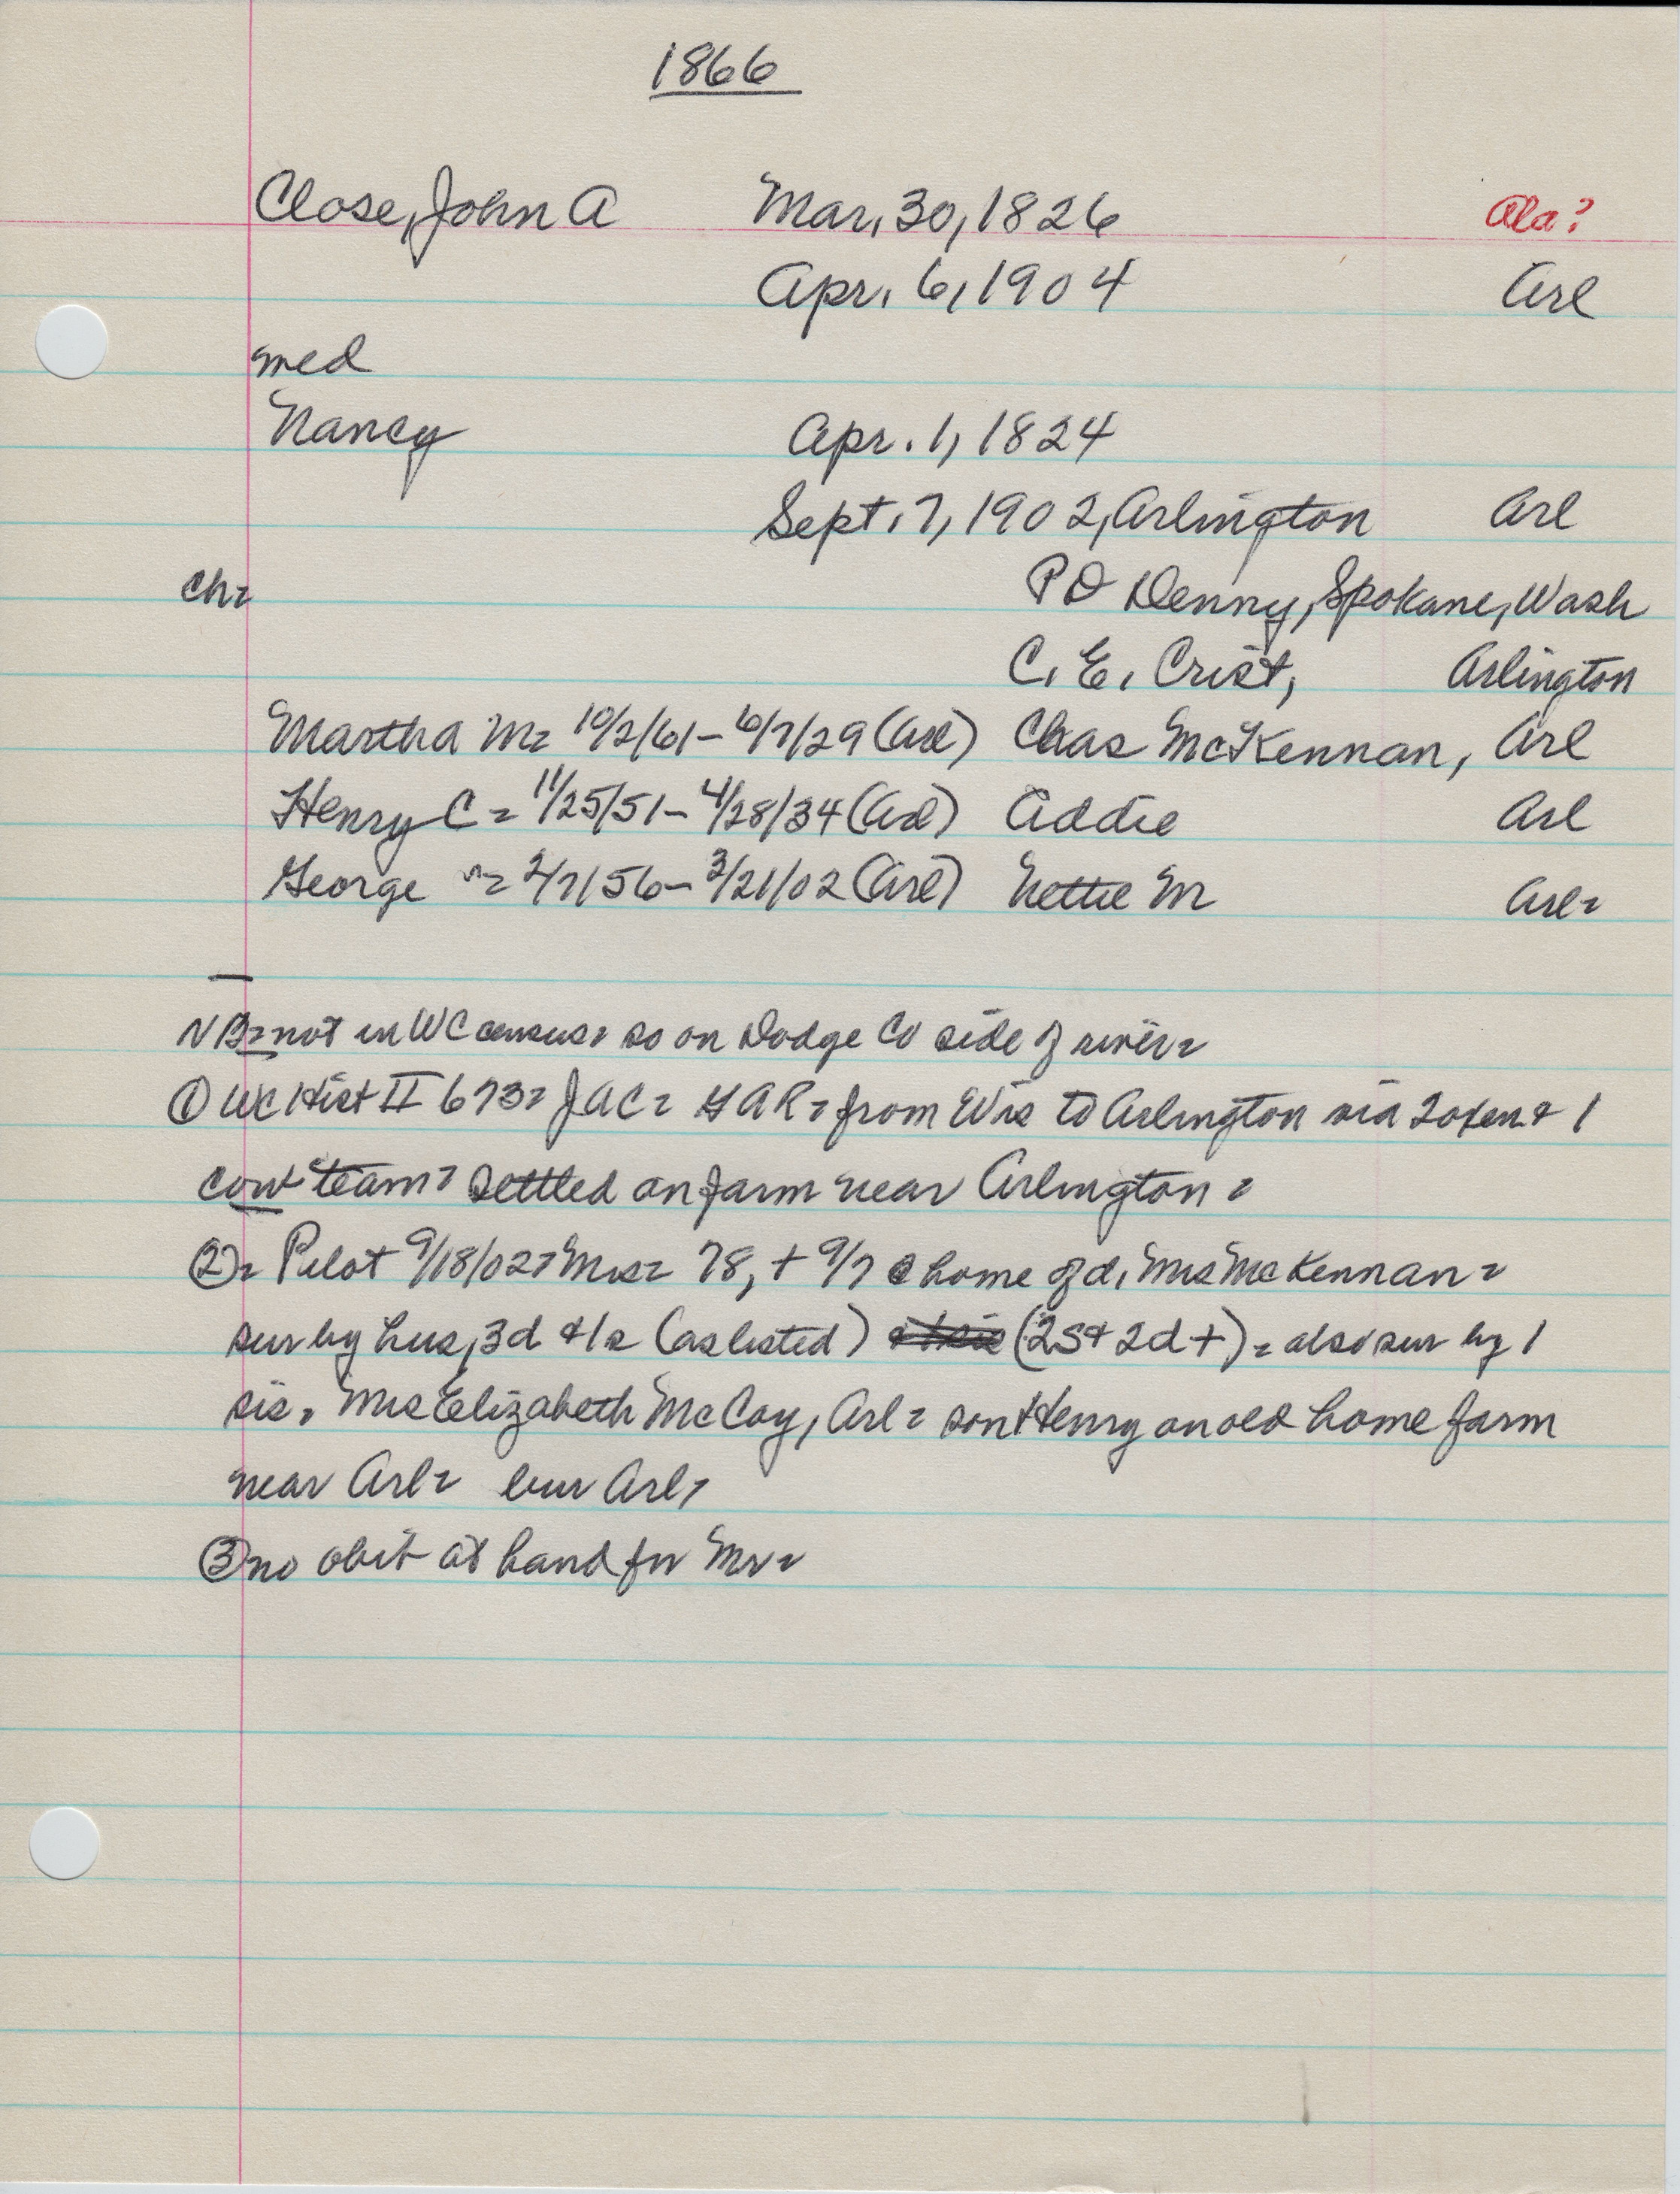 1866
Close, John A Mar, 30, 1826 Ala?
Apr. 6, 1904 Arl
med
Nancy Apr. 1, 1824
Sept. 7, 1902, Arlington Arl
Ch= P D Denny, Spokane, Wash
C. E. Crist, Arlington
Martha M= 10/2/61 - 6/7/29 (Arl) Chas McKennan, Arl
Henry C = 11/25/51 - 4/28/34 (Arl) Addie Arl
George = 2/7/56 - 3/21/02 (Arl) Nettie M Arl=
NB= not in WC census= so on Dodge Co side of river=
① WC Hist II 673= JAC= GAR= from Wis to Arlington via 2 oxen & 1
cow team= settled on farm near Arlington =
②= Pilot 9/18/02= Mrs= 78, + 9/7 @ home of d, Mrs McKennan =
sur by hus, 3d & 1s (as listed) (2s & 2d +) = also sur by 1
sis, Mrs Elizabeth McCoy, Arl = son Henry on old home farm
near Arl= bur Arl=
③ no obit at hand for Mr=